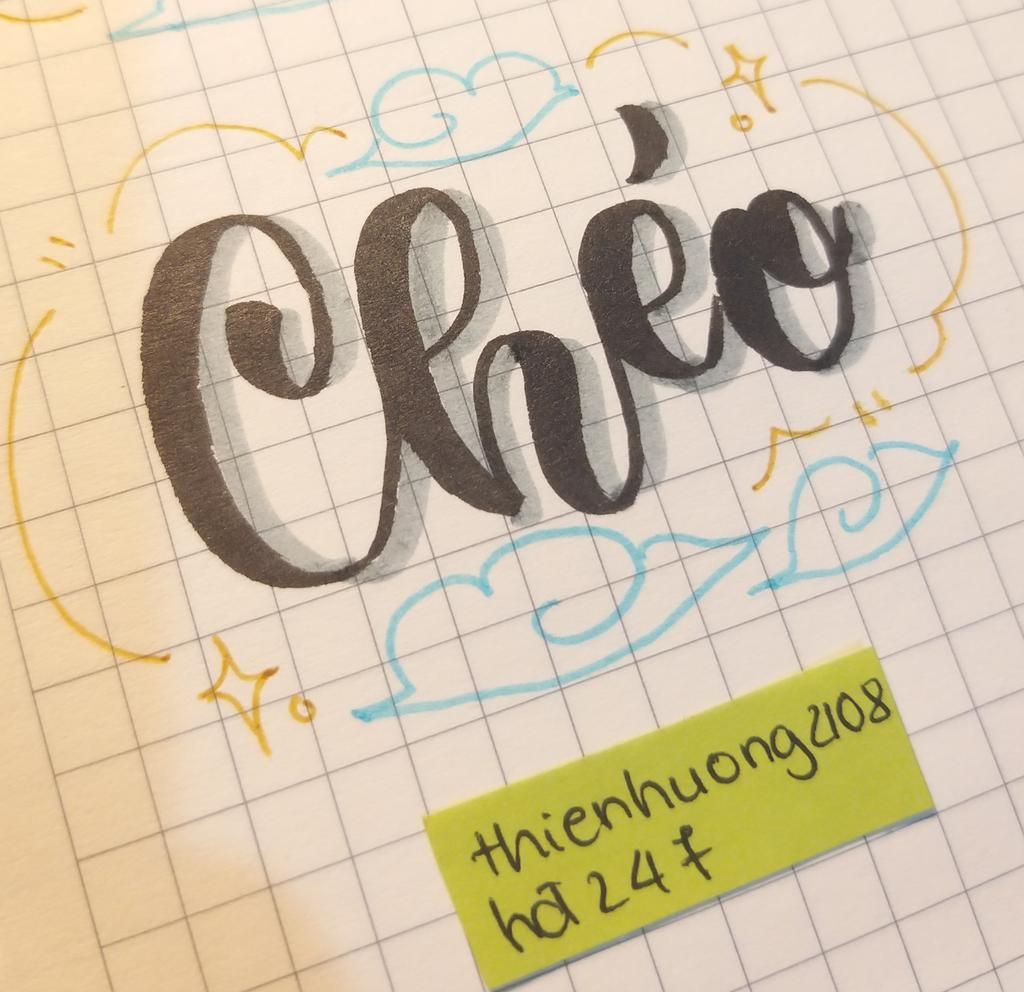 Chéo
thienhuong2108
hơi 247